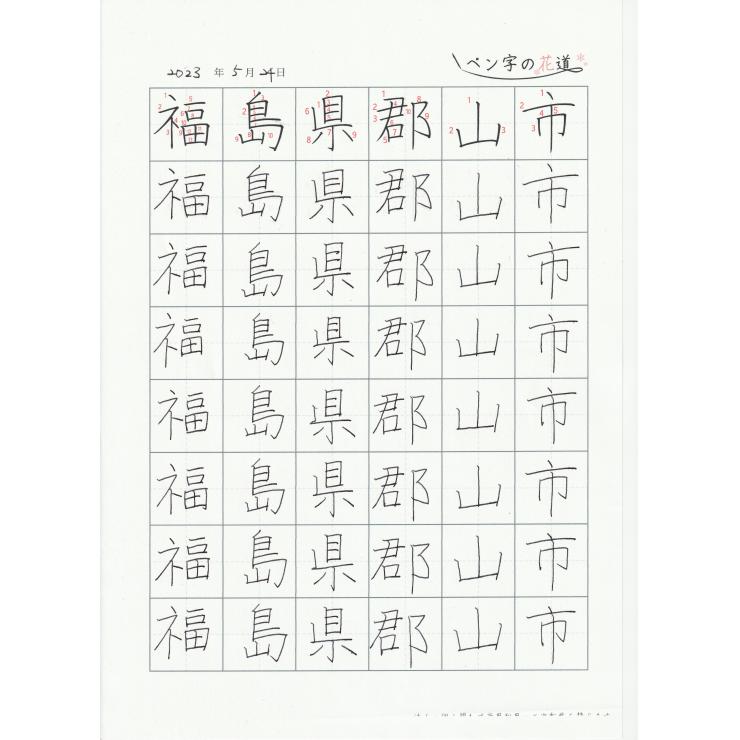 2023 年 5 月 24 日
ペン字の花道
福島県郡山市
福島県郡山市
福島県郡山市
福島県郡山市
福島県郡山市
福島県郡山市
福島県郡山市
福島県郡山市